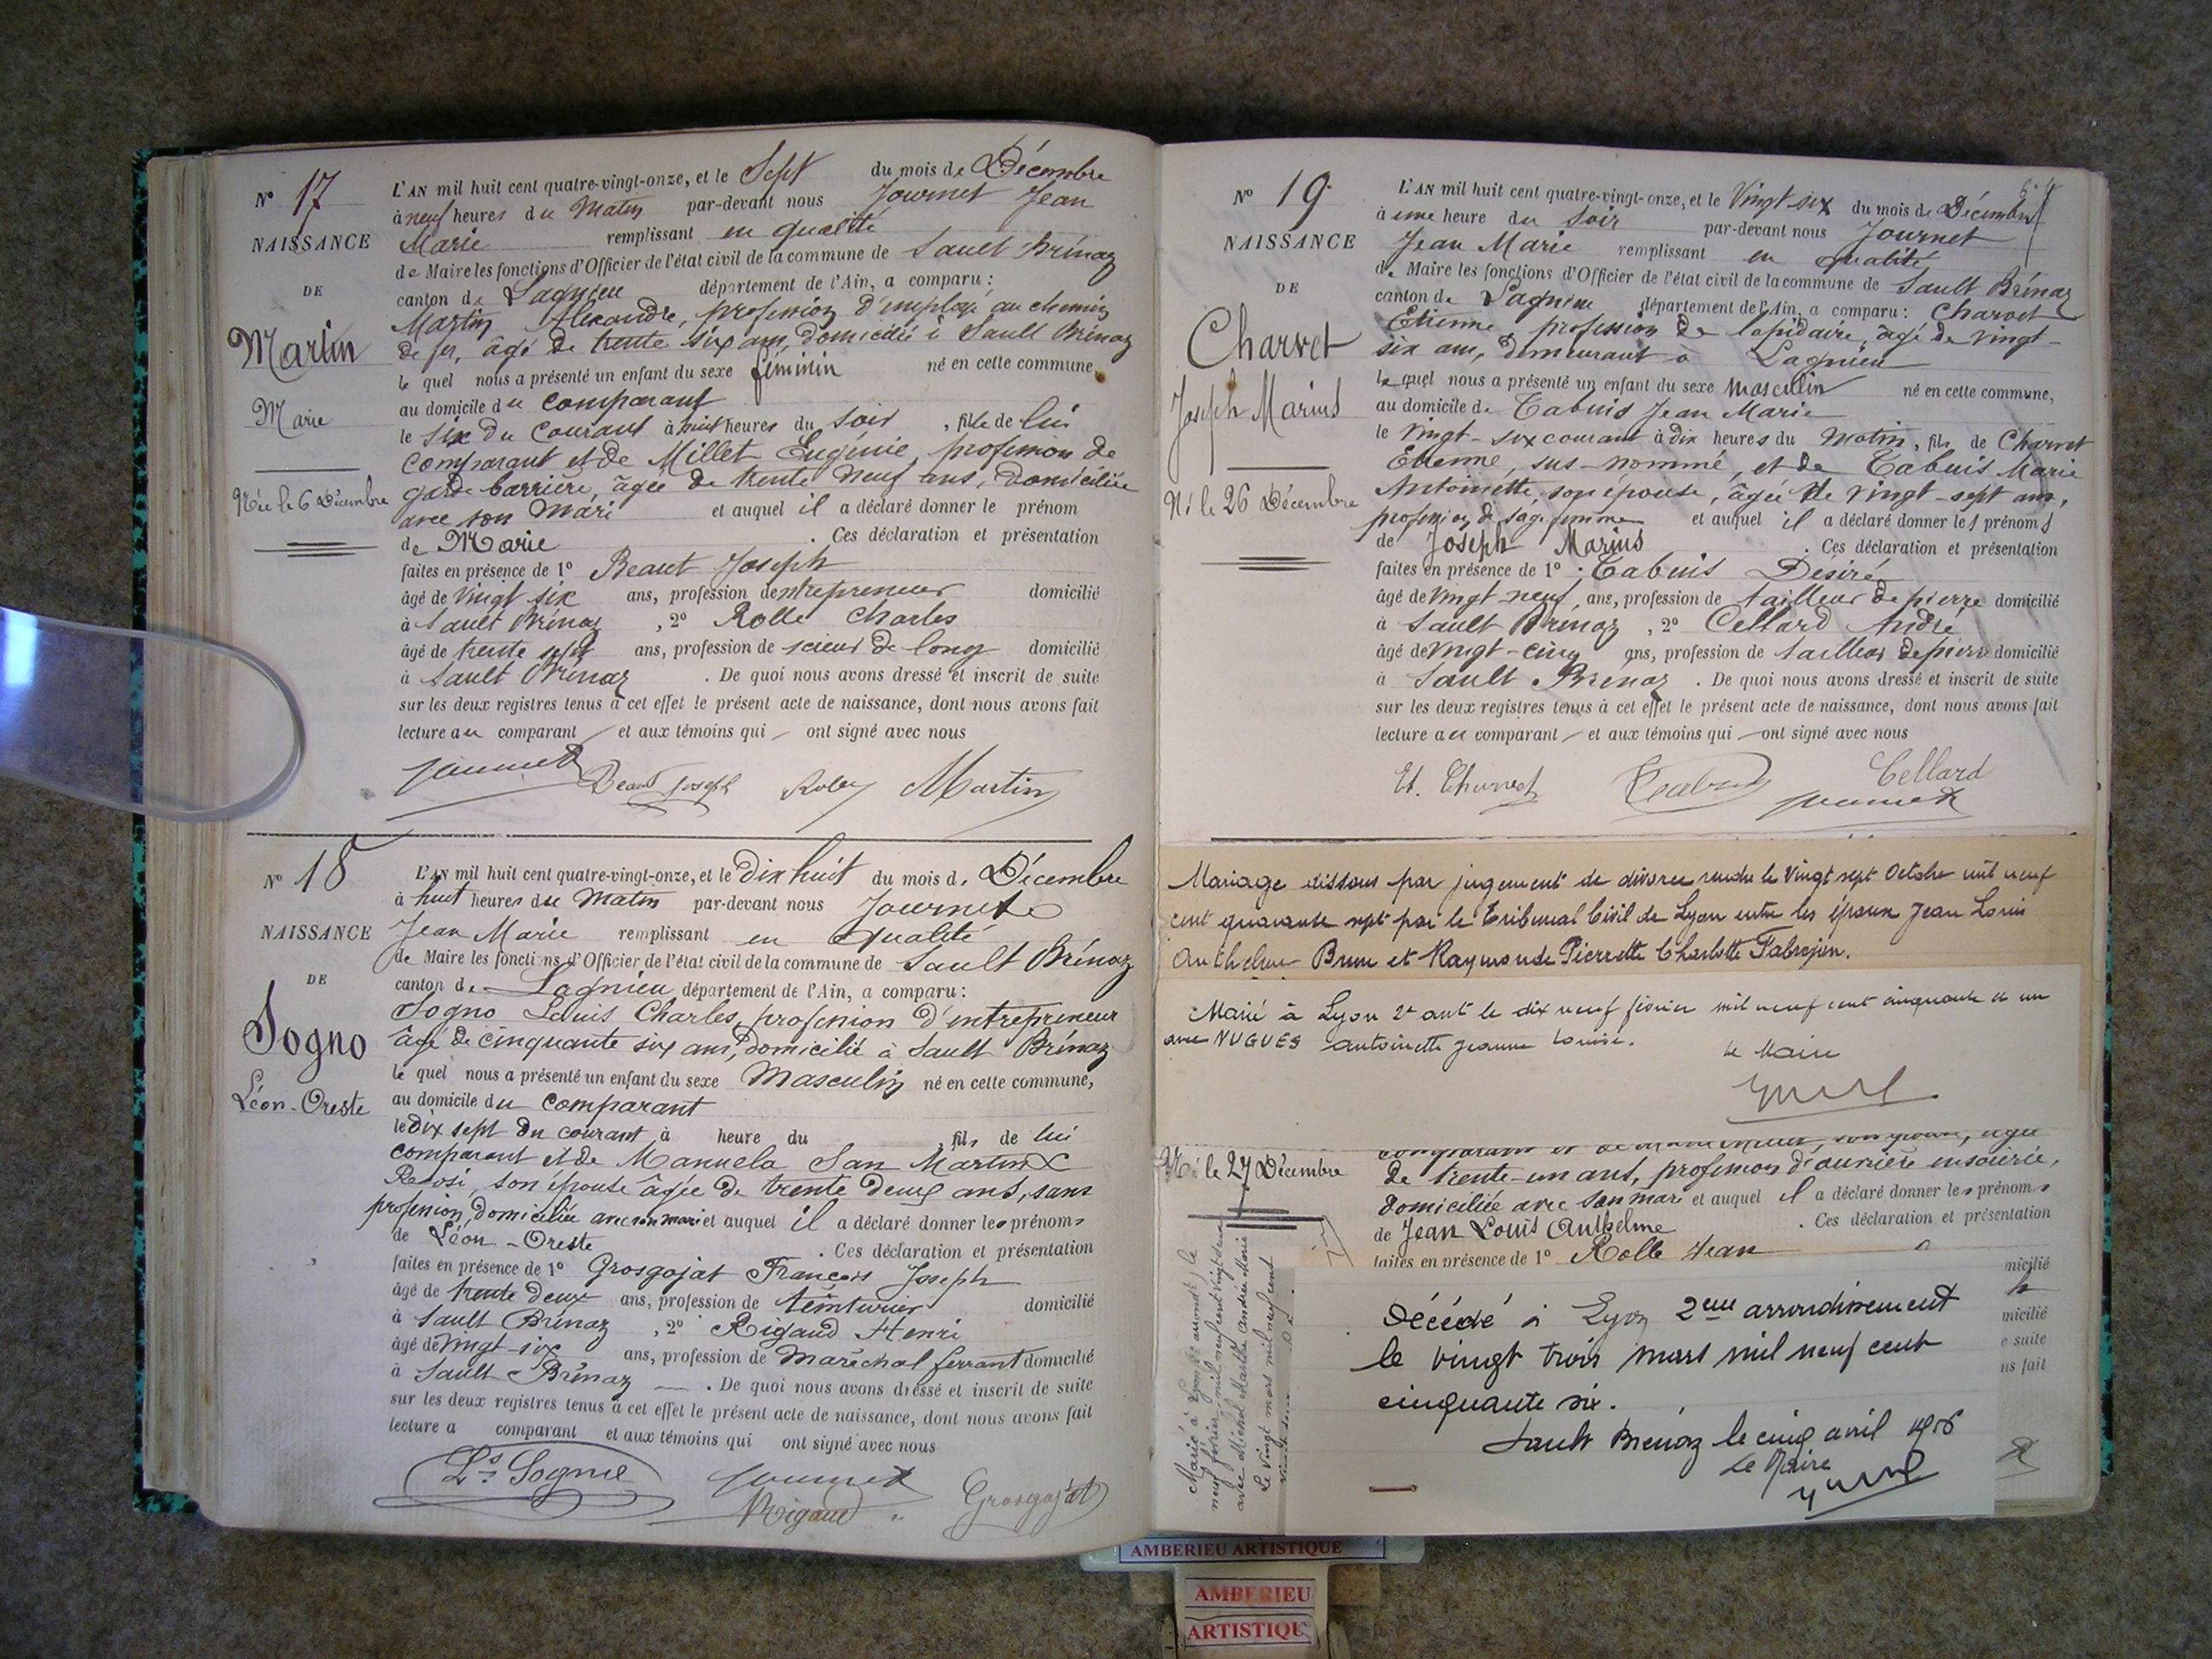 N° 17
NAISSANCE
DE
Martin
Marie
Née le 6 Décembre
L'AN mil huit cent quatre-vingt-onze, et le Sept du mois de Décembre
à neuf heures du Matin par-devant nous Journet Jean
Marie remplissant en qualité
de Maire les fonctions d'Officier de l'état civil de la commune de Sault Brénaz
canton de Lagnieu département de l'Ain, a comparu :
Martin Alexandre, profession d'employé au chemin
de fer, âgé de trente six ans, domicilié à Sault Brénaz
le quel nous a présenté un enfant du sexe féminin né en cette commune,
au domicile du comparant
le six du courant à huit heures du soir, fille de lui
comparant et de Millet Eugénie, profession de
garde barrière, âgée de trente neuf ans, domiciliée
avec son mari et auquel il a déclaré donner le prénom
de Marie . Ces déclaration et présentation
faites en présence de 1° Béaut Joseph
âgé de vingt six ans, profession d'entrepreneur domicilié
à Sault Brénaz, 2° Rolle Charles
âgé de trente sept ans, profession de scieur de long domicilié
à Sault Brénaz . De quoi nous avons dressé et inscrit de suite
sur les deux registres tenus à cet effet le présent acte de naissance, dont nous avons fait
lecture au comparant et aux témoins qui ont signé avec nous
Journet Béaud Joseph Rolle Martin
N° 18
NAISSANCE
DE
Sogno
Léon-Oreste
L'AN mil huit cent quatre-vingt-onze, et le dix huit du mois de Décembre
à huit heures du Matin par-devant nous Journet
Jean Marie remplissant en qualité
de Maire les fonctions d'Officier de l'état civil de la commune de Sault Brénaz
canton de Lagnieu département de l'Ain, a comparu :
Sogno Louis Charles, profession d'entrepreneur
âgé de cinquante six ans, domicilié à Sault Brénaz
le quel nous a présenté un enfant du sexe Masculin né en cette commune,
au domicile du comparant
le dix sept du courant à heure du , fils de lui
comparant et de Manuela San Martin
son épouse âgée de trente deux ans, sans
profession, domiciliée avec son mari et auquel il a déclaré donner les prénoms
de Léon-Oreste . Ces déclaration et présentation
faites en présence de 1° Grosgojat François Joseph
âgé de trente deux ans, profession de teinturier domicilié
à Sault Brénaz, 2° Rigaud Henri
âgé de vingt-six ans, profession de Maréchal ferrant domicilié
à Sault Brénaz . De quoi nous avons dressé et inscrit de suite
sur les deux registres tenus à cet effet le présent acte de naissance, dont nous avons fait
lecture a comparant et aux témoins qui ont signé avec nous
Ls Sogno Journet Grosgojat
Rigaud
N° 19
NAISSANCE
DE
Charvet
Joseph Marius
Né le 26 Décembre
L'AN mil huit cent quatre-vingt-onze, et le Vingt-six du mois de Décembre
à une heure du Soir par-devant nous Journet
Jean Marie remplissant en qualité
de Maire les fonctions d'Officier de l'état civil de la commune de Sault Brénaz
canton de Lagnieu département de l'Ain, a comparu : Charvet
Etienne, profession de lapidaire, âgé de vingt-
six ans, demeurant à Lagnieu
le quel nous a présenté un enfant du sexe masculin né en cette commune,
au domicile de Cabuis Jean Marie
le vingt-six courant à dix heures du matin, fils de Charvet
Etienne, sus-nommé, et de Cabuis Marie
Antoinette, son épouse, âgée de vingt-sept ans,
profession de sage femme et auquel il a déclaré donner les prénoms
de Joseph Marius . Ces déclaration et présentation
faites en présence de 1° Cabuis Désiré
âgé de vingt-neuf ans, profession de tailleur de pierre domicilié
à Sault Brénaz, 2° Cellard André
âgé de vingt-cinq ans, profession de tailleur de pierre domicilié
à Sault Brénaz . De quoi nous avons dressé et inscrit de suite
sur les deux registres tenus à cet effet le présent acte de naissance, dont nous avons fait
lecture au comparant et aux témoins qui ont signé avec nous
Et. Charvet Cabuis Cellard
Journet
Mariage dissous par jugement de divorce rendu le Vingt sept Octobre mil neuf
cent quarante sept par le Tribunal Civil de Lyon entre les époux Jean Louis
Anthelme Brun et Raymonde Pierrette Charlotte Fabrejon.
Marié à Lyon 2e arrt le dix neuf février mil neuf cent cinquante et un
avec NUGUES Antoinette Jeanne Louise.
Le Maire
Né le 27 Décembre
de trente-un ans, profession d'ouvrière en soierie,
domiciliée avec son mari et auquel il a déclaré donner les prénoms
de Jean Louis Anthelme . Ces déclaration et présentation
faites en présence de 1° Rolle Jean
micilié
micilié
e suite
ns fait
Marié à Lyon le
neuf février mil neuf cent vingt
avec Michel Marthe Andrée Marie
Le Vingt mars mil neuf cent
Décédé à Lyon 2eme arrondissement
le vingt trois mars mil neuf cent
cinquante six.
Sault Brénaz le cinq avril 1956
Le Maire
AMBERIEU ARTISTIQUE
AMBERIEU
ARTISTIQUE